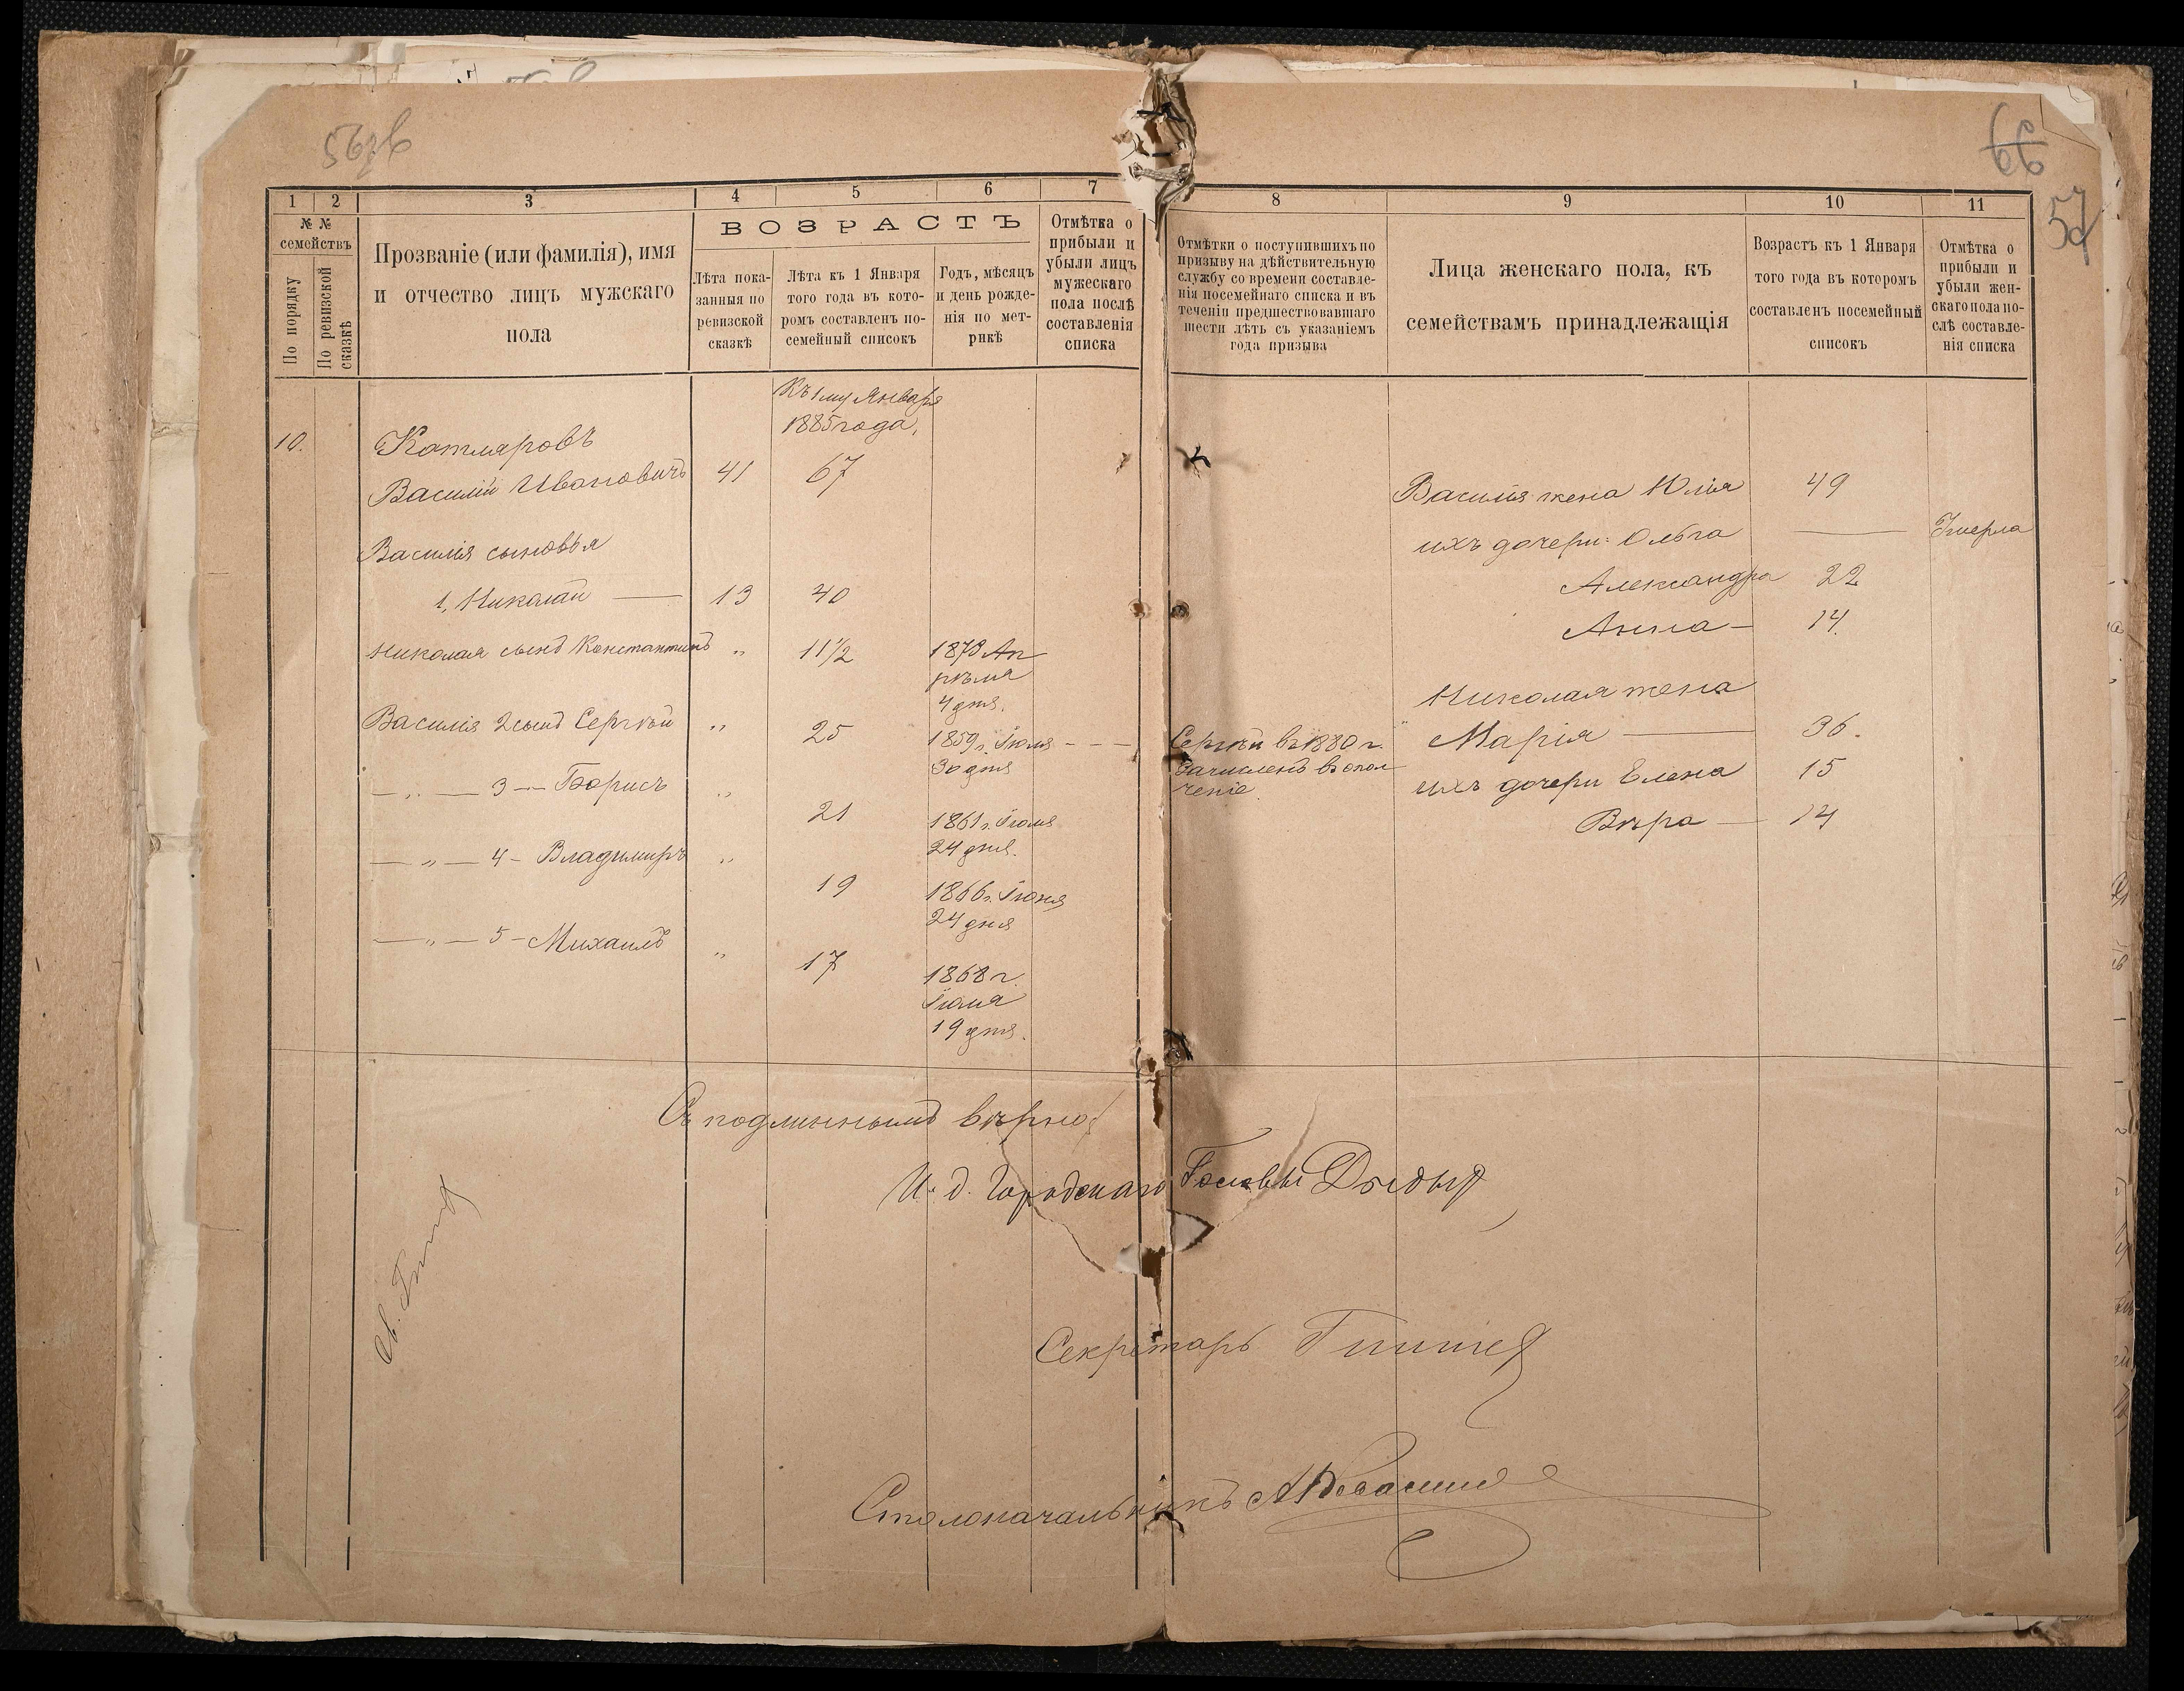 66
57
1 2 3 4 5 6 7 8 9 10 11
№ №
семействъ
По порядку
По ревизской
сказкѣ
Прозваніе (или фамилія), имя
и отчество лицъ мужскаго
пола
ВОЗРАСТЪ
Лѣта пока-
занныя по
ревизской
сказкѣ
Лѣта къ 1 Января
того года въ кото-
ромъ составленъ по-
семейный списокъ
Годъ, мѣсяцъ
и день рожде-
нія по мет-
рикѣ
Отмѣтка о
прибыли и
убыли лицъ
мужескаго
пола послѣ
составленія
списка
Отмѣтки о поступившихъ по
призыву на дѣйствительную
службу со времени составле-
нія посемейнаго списка и въ
теченіи предшествовавшаго
шести лѣтъ съ указаніемъ
года призыва
Лица женскаго пола, къ
семействамъ принадлежащія
Возрастъ къ 1 Января
того года въ которомъ
составленъ посемейный
списокъ
Отмѣтка о
прибыли и
убыли жен-
скаго пола по-
слѣ составле-
нія списка
Къ 1му Января
1885 года,
10. Катляровъ
Василій Ивановичъ 41 67
Василія сыновья
1, Николай — 13 40
Николая сынъ Константинъ " 11½ 1873 Ап
рѣля
4 дня.
Василія 2 сынъ Сергѣй " 25 1859 г. Іюля - - -
30 дня
— " — 3 — Борисъ " 21 1861 г. Іюля
24 дня.
— " — 4 - Владимиръ " 19 1866 г. Іюня
24 дня
— " — 5 - Михаилъ " 17 1868 г.
Іюля
19 дня.
Сергѣй въ 1880 г.
зачисленъ въ опол
ченіе.
Василія жена Юлія 49
ихъ дочери: Ольга — Умерла
Александра 22
Анна — 14.
Николая жена
Марія — 36.
ихъ дочери Елена 15
Вѣра — 14
Съ подлиннымъ вѣрно:
И. д. Городскаго Головы
Секретарь
Столоначальникъ